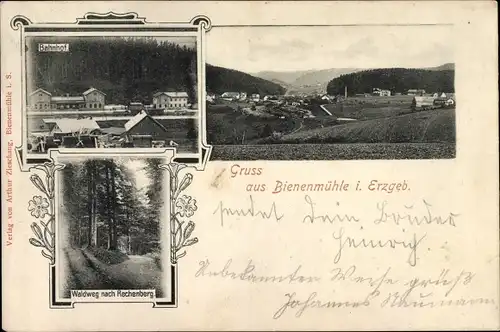 Bahnhof
Verlag von Arthur Zieschang, Bienenmühle i. S.
Gruss
aus Bienenmühle i. Erzgeb.
sendet Dein Bruder
Heinrich
Unbekannter Weise grüßt
Johannes Naumann
Waldweg nach Rechenberg